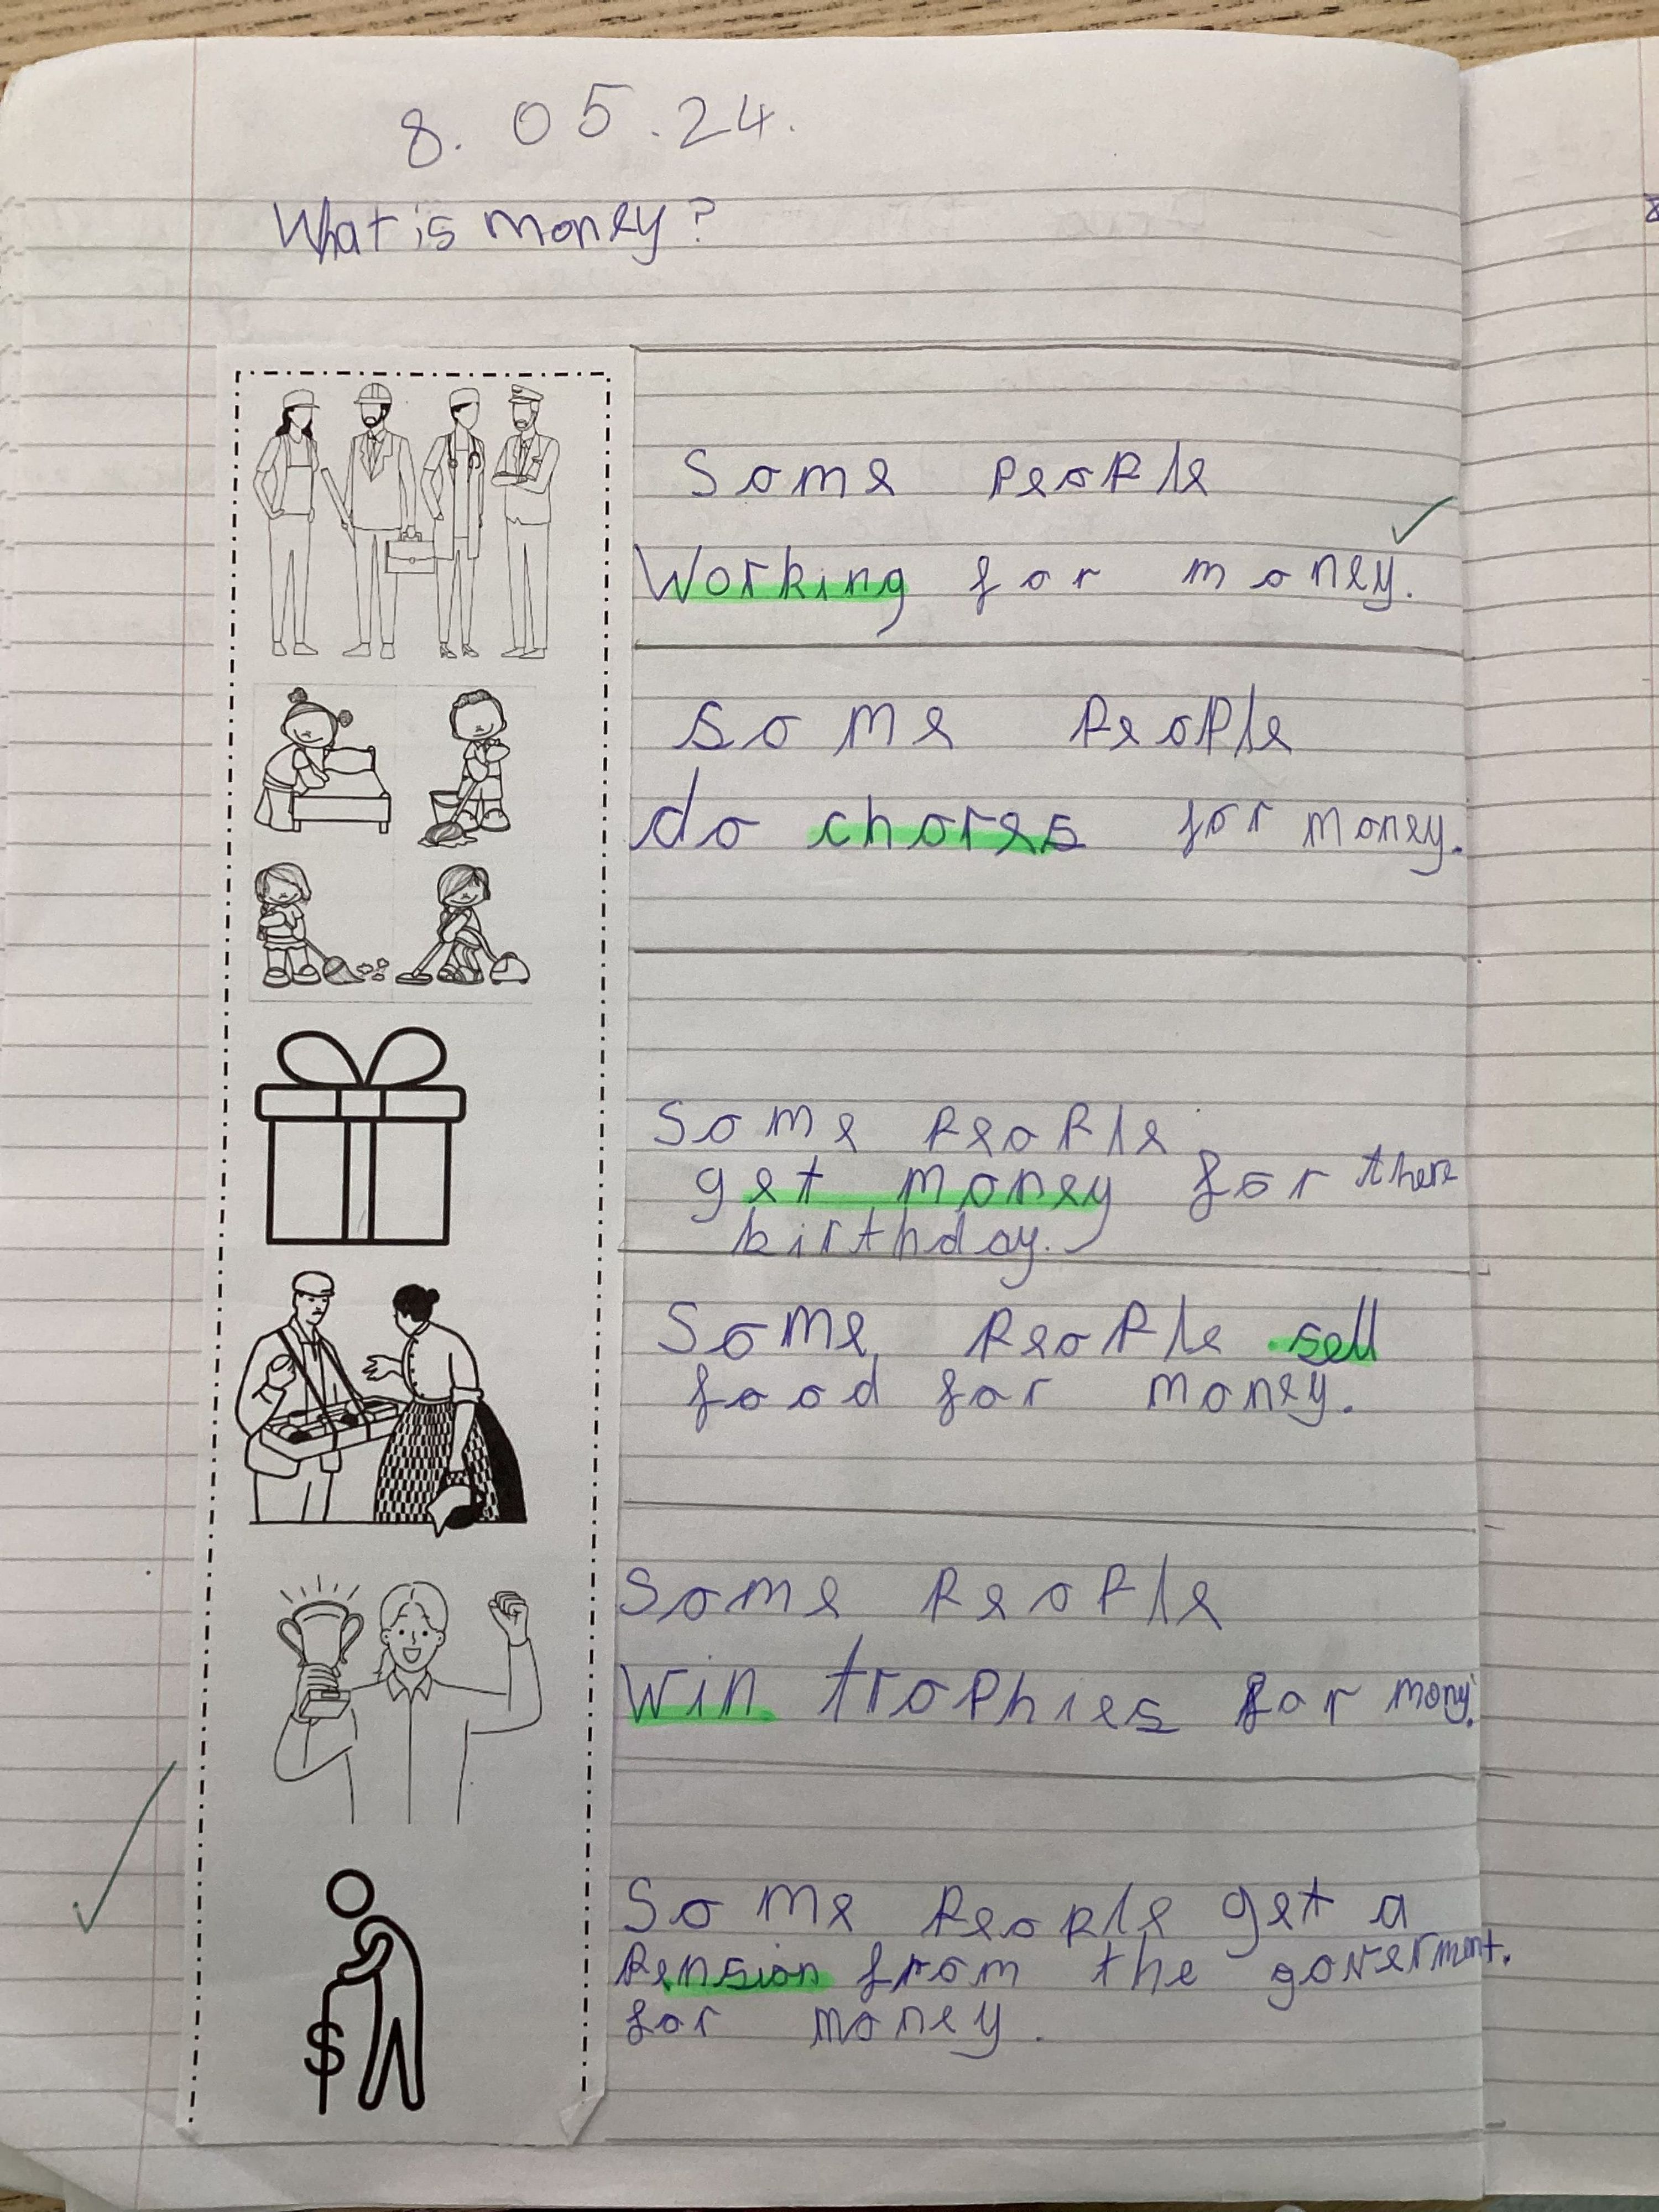 8. 05.24.
What is money?
Some people
Working for money.
Some people
do chores for money.
Some people
get money for there
birthday.
Some people sell
food for money.
Some people
Win trophies for mony.
Some people get a
Pension from the goverment.
for money.
$